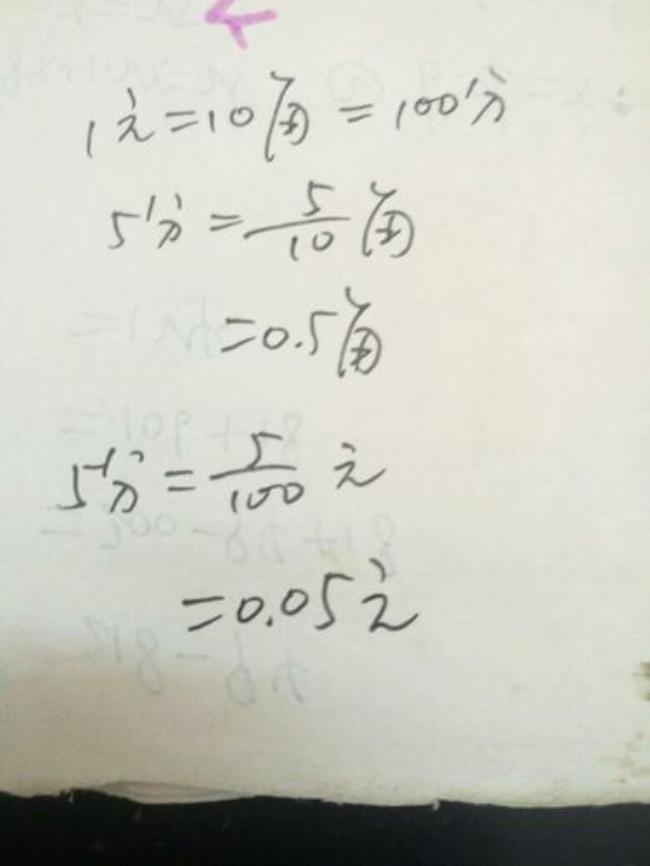 1元=10角=100分
5分=5/10角
=0.5角
5分=5/100元
=0.05元